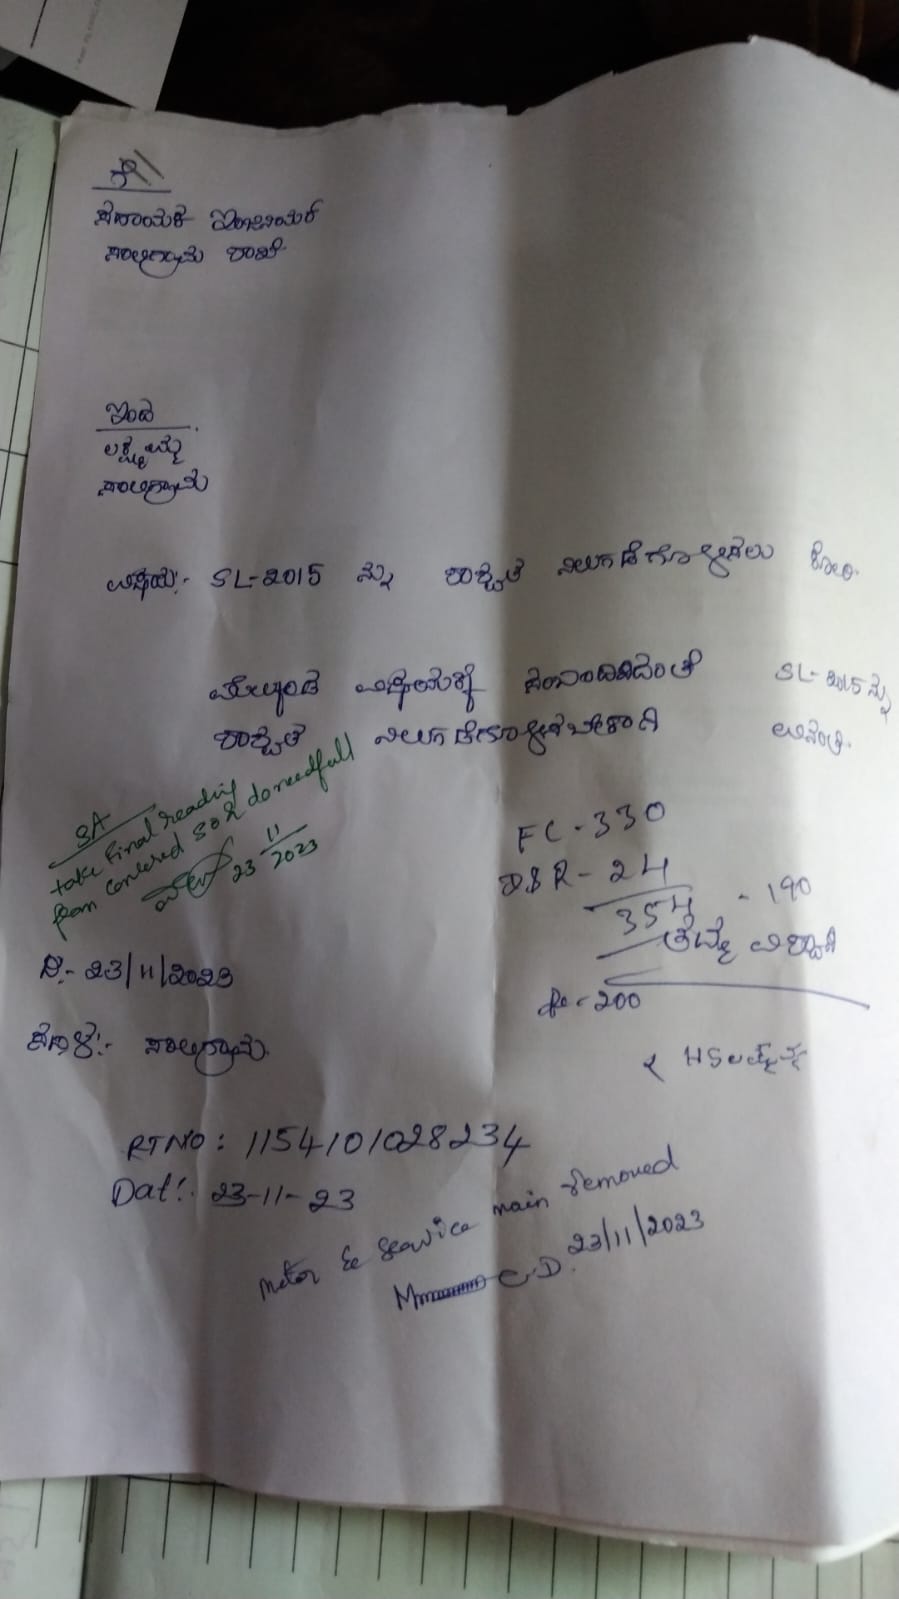 ಗೆ
ಸಹಾಯಕ ಇಂಜಿನಿಯರ್
ಸಾಲಿಗ್ರಾಮ ಶಾಖೆ
ಇಂದ
ಲಕ್ಷ್ಮಮ್ಮ
ಸಾಲಿಗ್ರಾಮ
ವಿಷಯ:- SL-2015 ನ್ನು ಶಾಶ್ವತ ನಿಲುಗಡೆಗೊಳ್ಳಿಸಲು ಕೋರಿ
ಮೇಲ್ಕಂಡ ವಿಷಯಕ್ಕೆ ಸಂಬಂದಿಸಿದಂತೆ SL-2015 ನ್ನು
ಶಾಶ್ವತ ನಿಲುಗಡೆಗೊಳ್ಳಿಸಬೇಕಾಗಿ ವಿನಂತಿ.
SA
take final reading
from do needfull
23 11/2023
FC-330
DSR-24
354 - 190
-200
ದಿ:- 23/11/2023
ಸ್ಥಳ:- ಸಾಲಿಗ್ರಾಮ
RTNO: 1154101028234
Dat:- 23-11-23
meter & service main removed
23/11/2023